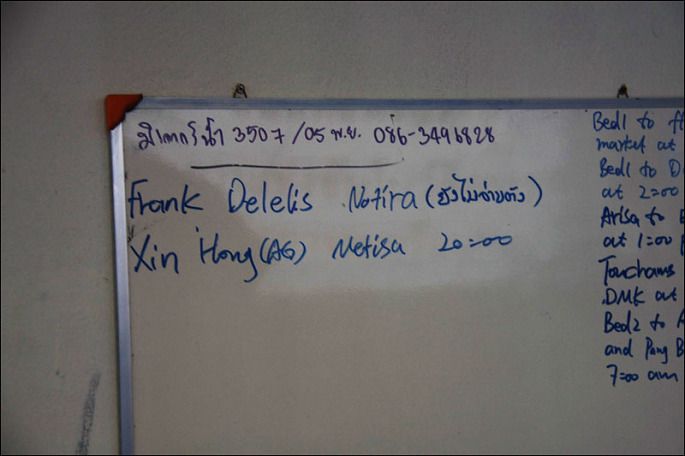 มิเตอร์น้ำ 3507 /05 พ.ย. 086-3496828
Frank Delelis Notira (ยังไม่จ่ายตัง)
Xin Hong (AG) Metisa 20=00
Bed1 to fl
market at
Bed1 to D
at 2=00
Arisa to
at 1=00
DMK at
Bed2 to A
and Pang B
7=00 am